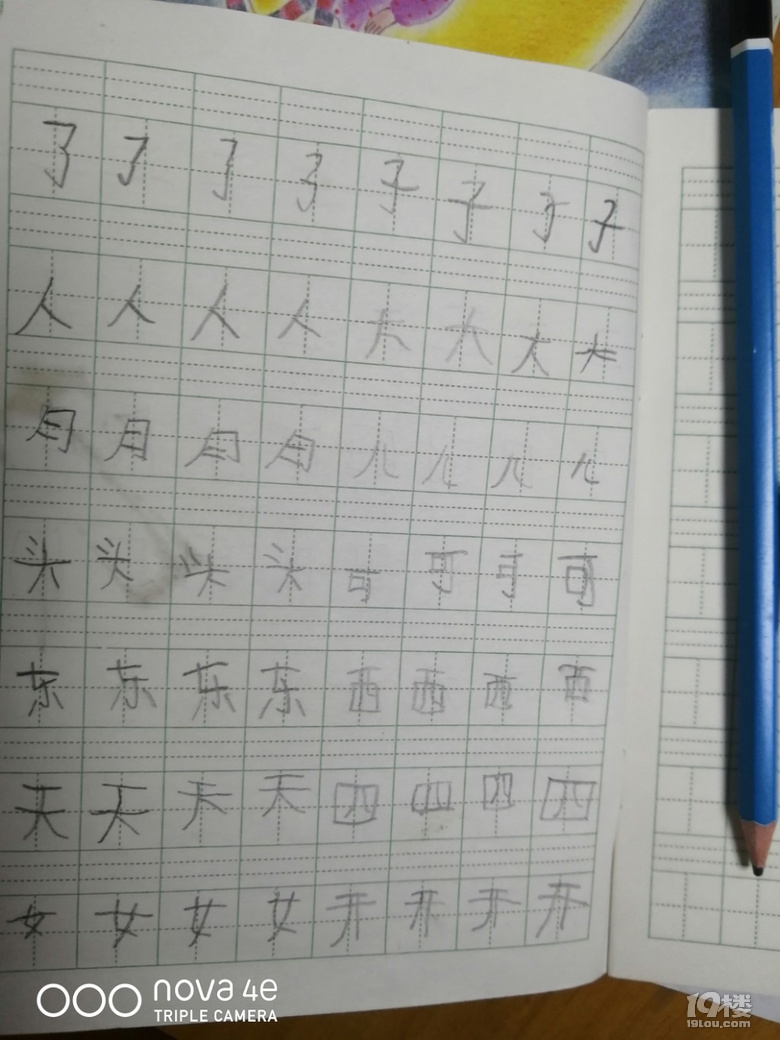 了 了 了 了 子 子 子 子
人 人 人 人 大 大 大 大
月 月 月 月 儿 儿 儿 儿
头 头 头 头 可 可 可 可
东 东 东 东 西 西 西 西
天 天 天 天 四 四 四 四
女 女 女 女 开 开 开 开
nova 4e
TRIPLE CAMERA
19楼
19lou.com